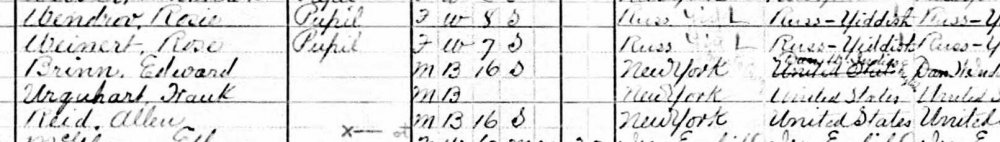 Wendrov, Rose Pupil F W 8 S Russ Yid L Russ-Yiddish Russ-Y
Weinert, Rose Pupil F W 7 S Russ Yid L Russ-Yiddish Russ-Y
Brinn, Edward M B 16 S New York United States
Urquhart, Frank M B New York United States United
Reid, Allen M B 16 S New York United States United